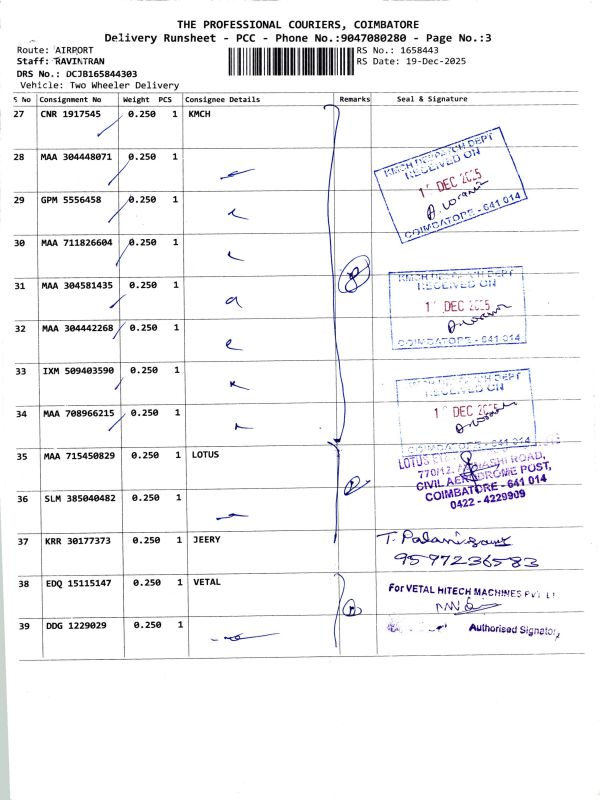 THE PROFESSIONAL COURIERS, COIMBATORE
Delivery Runsheet - PCC - Phone No.:9047080280 - Page No.:3
Route: AIRPORT
RS No.: 1658443
Staff: RAVINTRAN
RS Date: 19-Dec-2025
DRS No.: DCJB165844303
Vehicle: Two Wheeler Delivery
S No Consignment No Weight PCS Consignee Details Remarks Seal & Signature
27 CNR 1917545 0.250 1 KMCH
28 MAA 304448071 0.250 1
29 GPM 5556458 0.250 1
30 MAA 711826604 0.250 1
31 MAA 304581435 0.250 1
32 MAA 304442268 0.250 1
33 IXM 509403590 0.250 1
34 MAA 708966215 0.250 1
35 MAA 715450829 0.250 1 LOTUS
36 SLM 385040482 0.250 1
37 KRR 30177373 0.250 1 JEERY
38 EDQ 15115147 0.250 1 VETAL
39 DDG 1229029 0.250 1
KMCH DESPATCH DEPT
RECEIVED ON
DEC 2025
COIMBATORE - 641 014
KMCH DESPATCH DEPT
RECEIVED ON
DEC 2025
COIMBATORE - 641 014
KMCH DESPATCH DEPT
RECEIVED ON
DEC 2025
COIMBATORE - 641 014
LOTUS
770/12, AVINASHI ROAD,
CIVIL AERODROME POST,
COIMBATORE - 641 014
0422 - 4229909
9597236583
For VETAL HITECH MACHINES PVT LT
Authorised Signatory